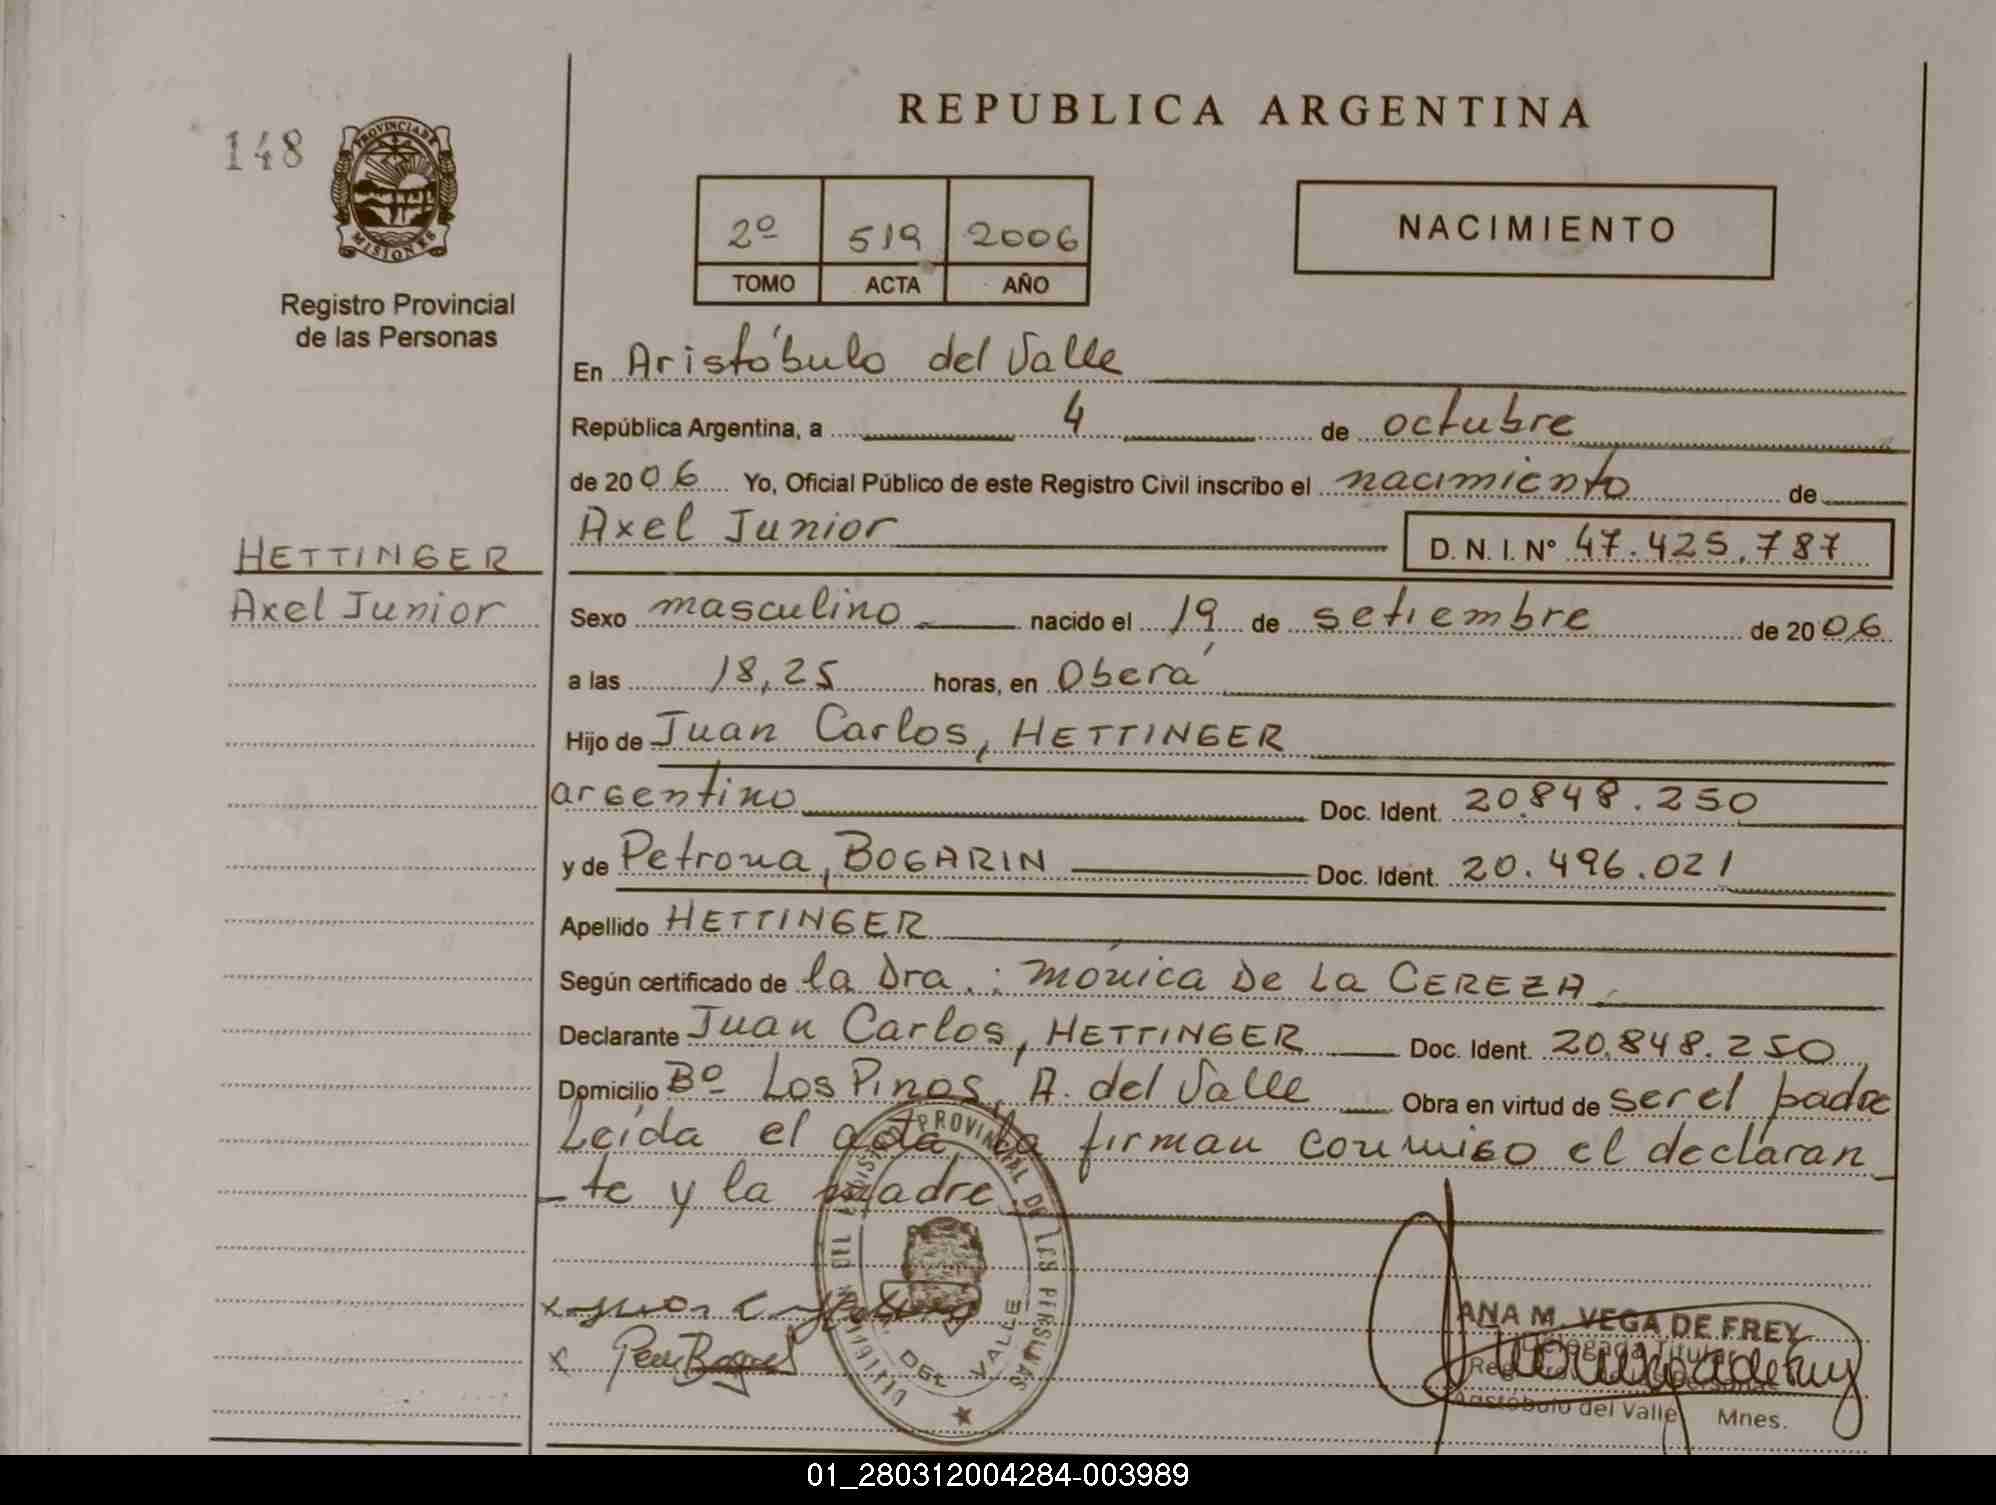 REPUBLICA ARGENTINA
148
PROVINCIA DE
MISIONES
Registro Provincial
de las Personas
2º 519 2006
TOMO ACTA AÑO
NACIMIENTO
En Aristóbulo del Valle
República Argentina, a 4 de octubre
de 2006 Yo, Oficial Público de este Registro Civil inscribo el nacimiento de
Axel Junior D. N. I. Nº 47.425.787
HETTINGER
Axel Junior
Sexo masculino nacido el 19 de setiembre de 2006
a las 18,25 horas, en Oberá
Hijo de Juan Carlos, HETTINGER
argentino Doc. Ident. 20.848.250
y de Petrona, BOGARIN Doc. Ident. 20.496.021
Apellido HETTINGER
Según certificado de la Dra.: Mónica De La CEREZA
Declarante Juan Carlos, HETTINGER Doc. Ident. 20.848.250
Domicilio Bº Los Pinos, A. del Valle Obra en virtud de ser el padre
Leída el acta, la firman conmigo el declaran
te y la madre
DEL REGISTRO PROVINCIAL DE LAS PERSONAS
DEL VALLE
ANA M. VEGA DE FREY
Delegada Titular
Aristóbulo del Valle Mnes.
01_280312004284-003989